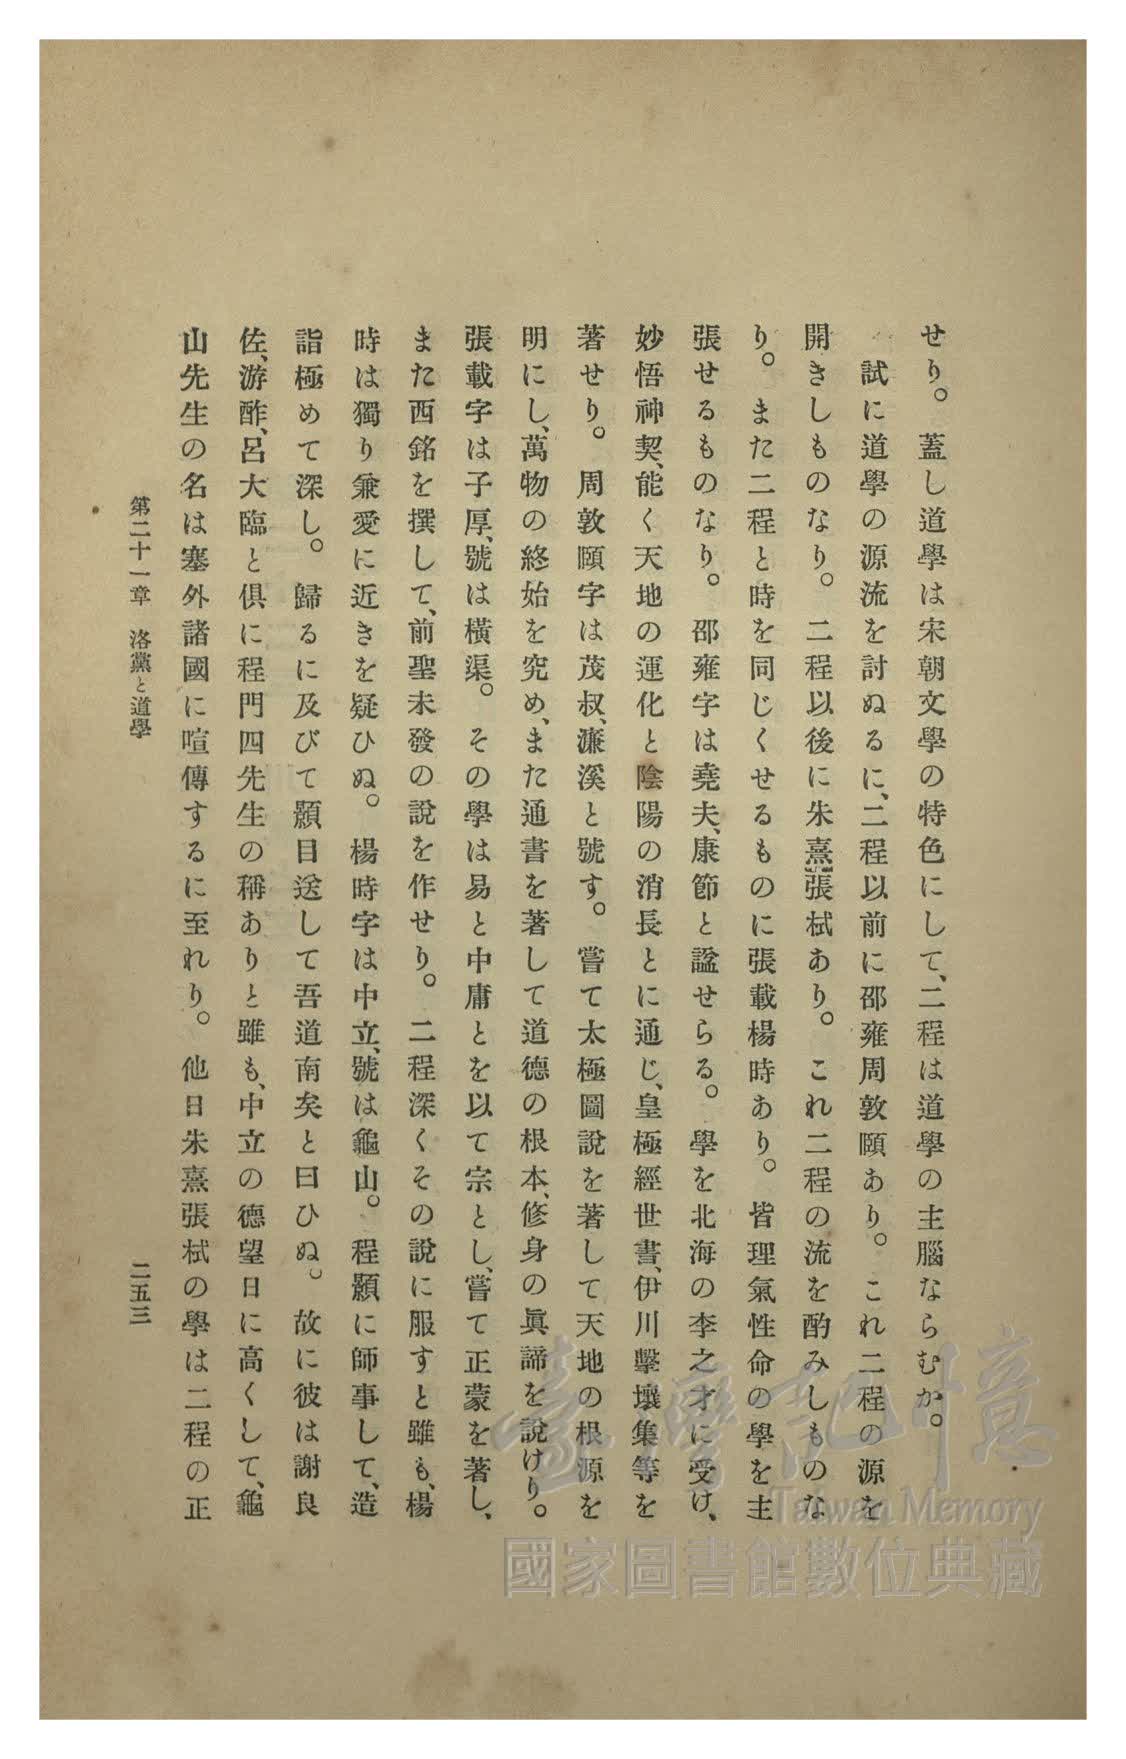 せり。蓋し道學は宋朝文學の特色にして、二程は道學の主腦ならむか。
試に道學の源流を討ぬるに、二程以前に邵雍周敦頤あり。これ二程の源を
開きしものなり。二程以後に朱熹張栻あり。これ二程の流を酌みしものな
り。また二程と時を同じくせるものに張載楊時あり。皆理氣性命の學を主
張せるものなり。邵雍字は堯夫、康節と諡せらる。學を北海の李之才に受け、
妙悟神契、能く天地の運化と陰陽の消長とに通じ、皇極經世書、伊川擊壤集等を
著せり。周敦頤字は茂叔、濂溪と號す。嘗て太極圖說を著して天地の根源を
明にし、萬物の終始を究め、また通書を著して道德の根本、修身の眞諦を說けり。
張載字は子厚、號は橫渠。その學は易と中庸とを以て宗とし、嘗て正蒙を著し、
また西銘を撰して、前聖未發の說を作せり。二程深くその說に服すと雖も、楊
時は獨り兼愛に近きを疑ひぬ。楊時字は中立、號は龜山。程顥に師事して、造
詣極めて深し。歸るに及びて顥目送して吾道南矣と曰ひぬ。故に彼は謝良
佐、游酢、呂大臨と俱に程門四先生の稱ありと雖も、中立の德望日に高くして、龜
山先生の名は塞外諸國に喧傳するに至れり。他日朱熹張栻の學は二程の正
第二十一章 洛黨と道學 二五三
臺灣記憶
Taiwan Memory
國家圖書館數位典藏